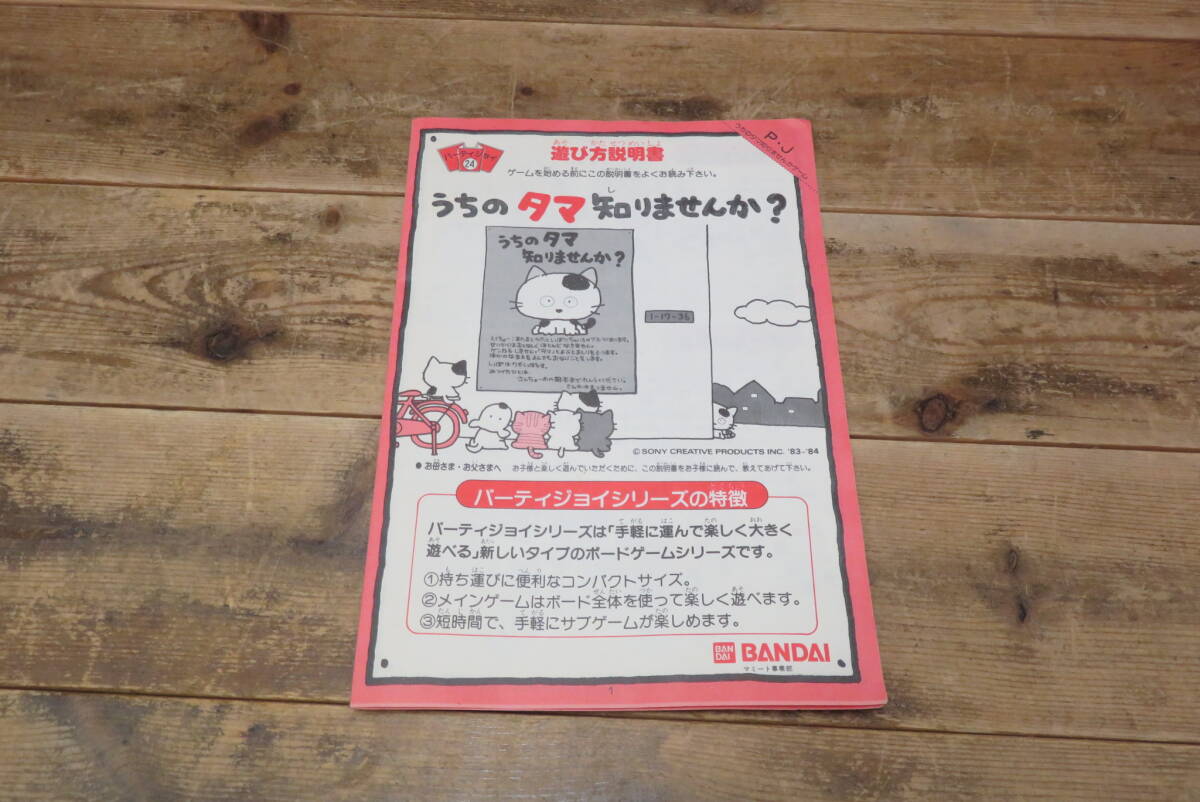 パーティジョイ
24
遊び方説明書
あそ かた せつめいしょ
ゲームを始める前にこの説明書をよくお読み下さい。
P・J
うちのタマ知りませんかゲーム
うちの タマ 知りませんか?
し
うちの タマ
知りませんか?
1-17-36
© SONY CREATIVE PRODUCTS INC. '83-'84
●お母さま・お父さまへ お子様と楽しく遊んでいただくために、この説明書をお子様に読んで、教えてあげて下さい。
パーティジョイシリーズの特徴
とくちょう
パーティジョイシリーズは「手軽に運んで楽しく大きく
てがる はこ たの おお
遊べる」新しいタイプのボードゲームシリーズです。
あそ あたら
①持ち運びに便利なコンパクトサイズ。
も はこ べんり
②メインゲームはボード全体を使って楽しく遊べます。
ぜんたい つか たの あそ
③短時間で、手軽にサブゲームが楽しめます。
たんじかん てがる たの
BAN
DAI
BANDAI
マミート事業部
1